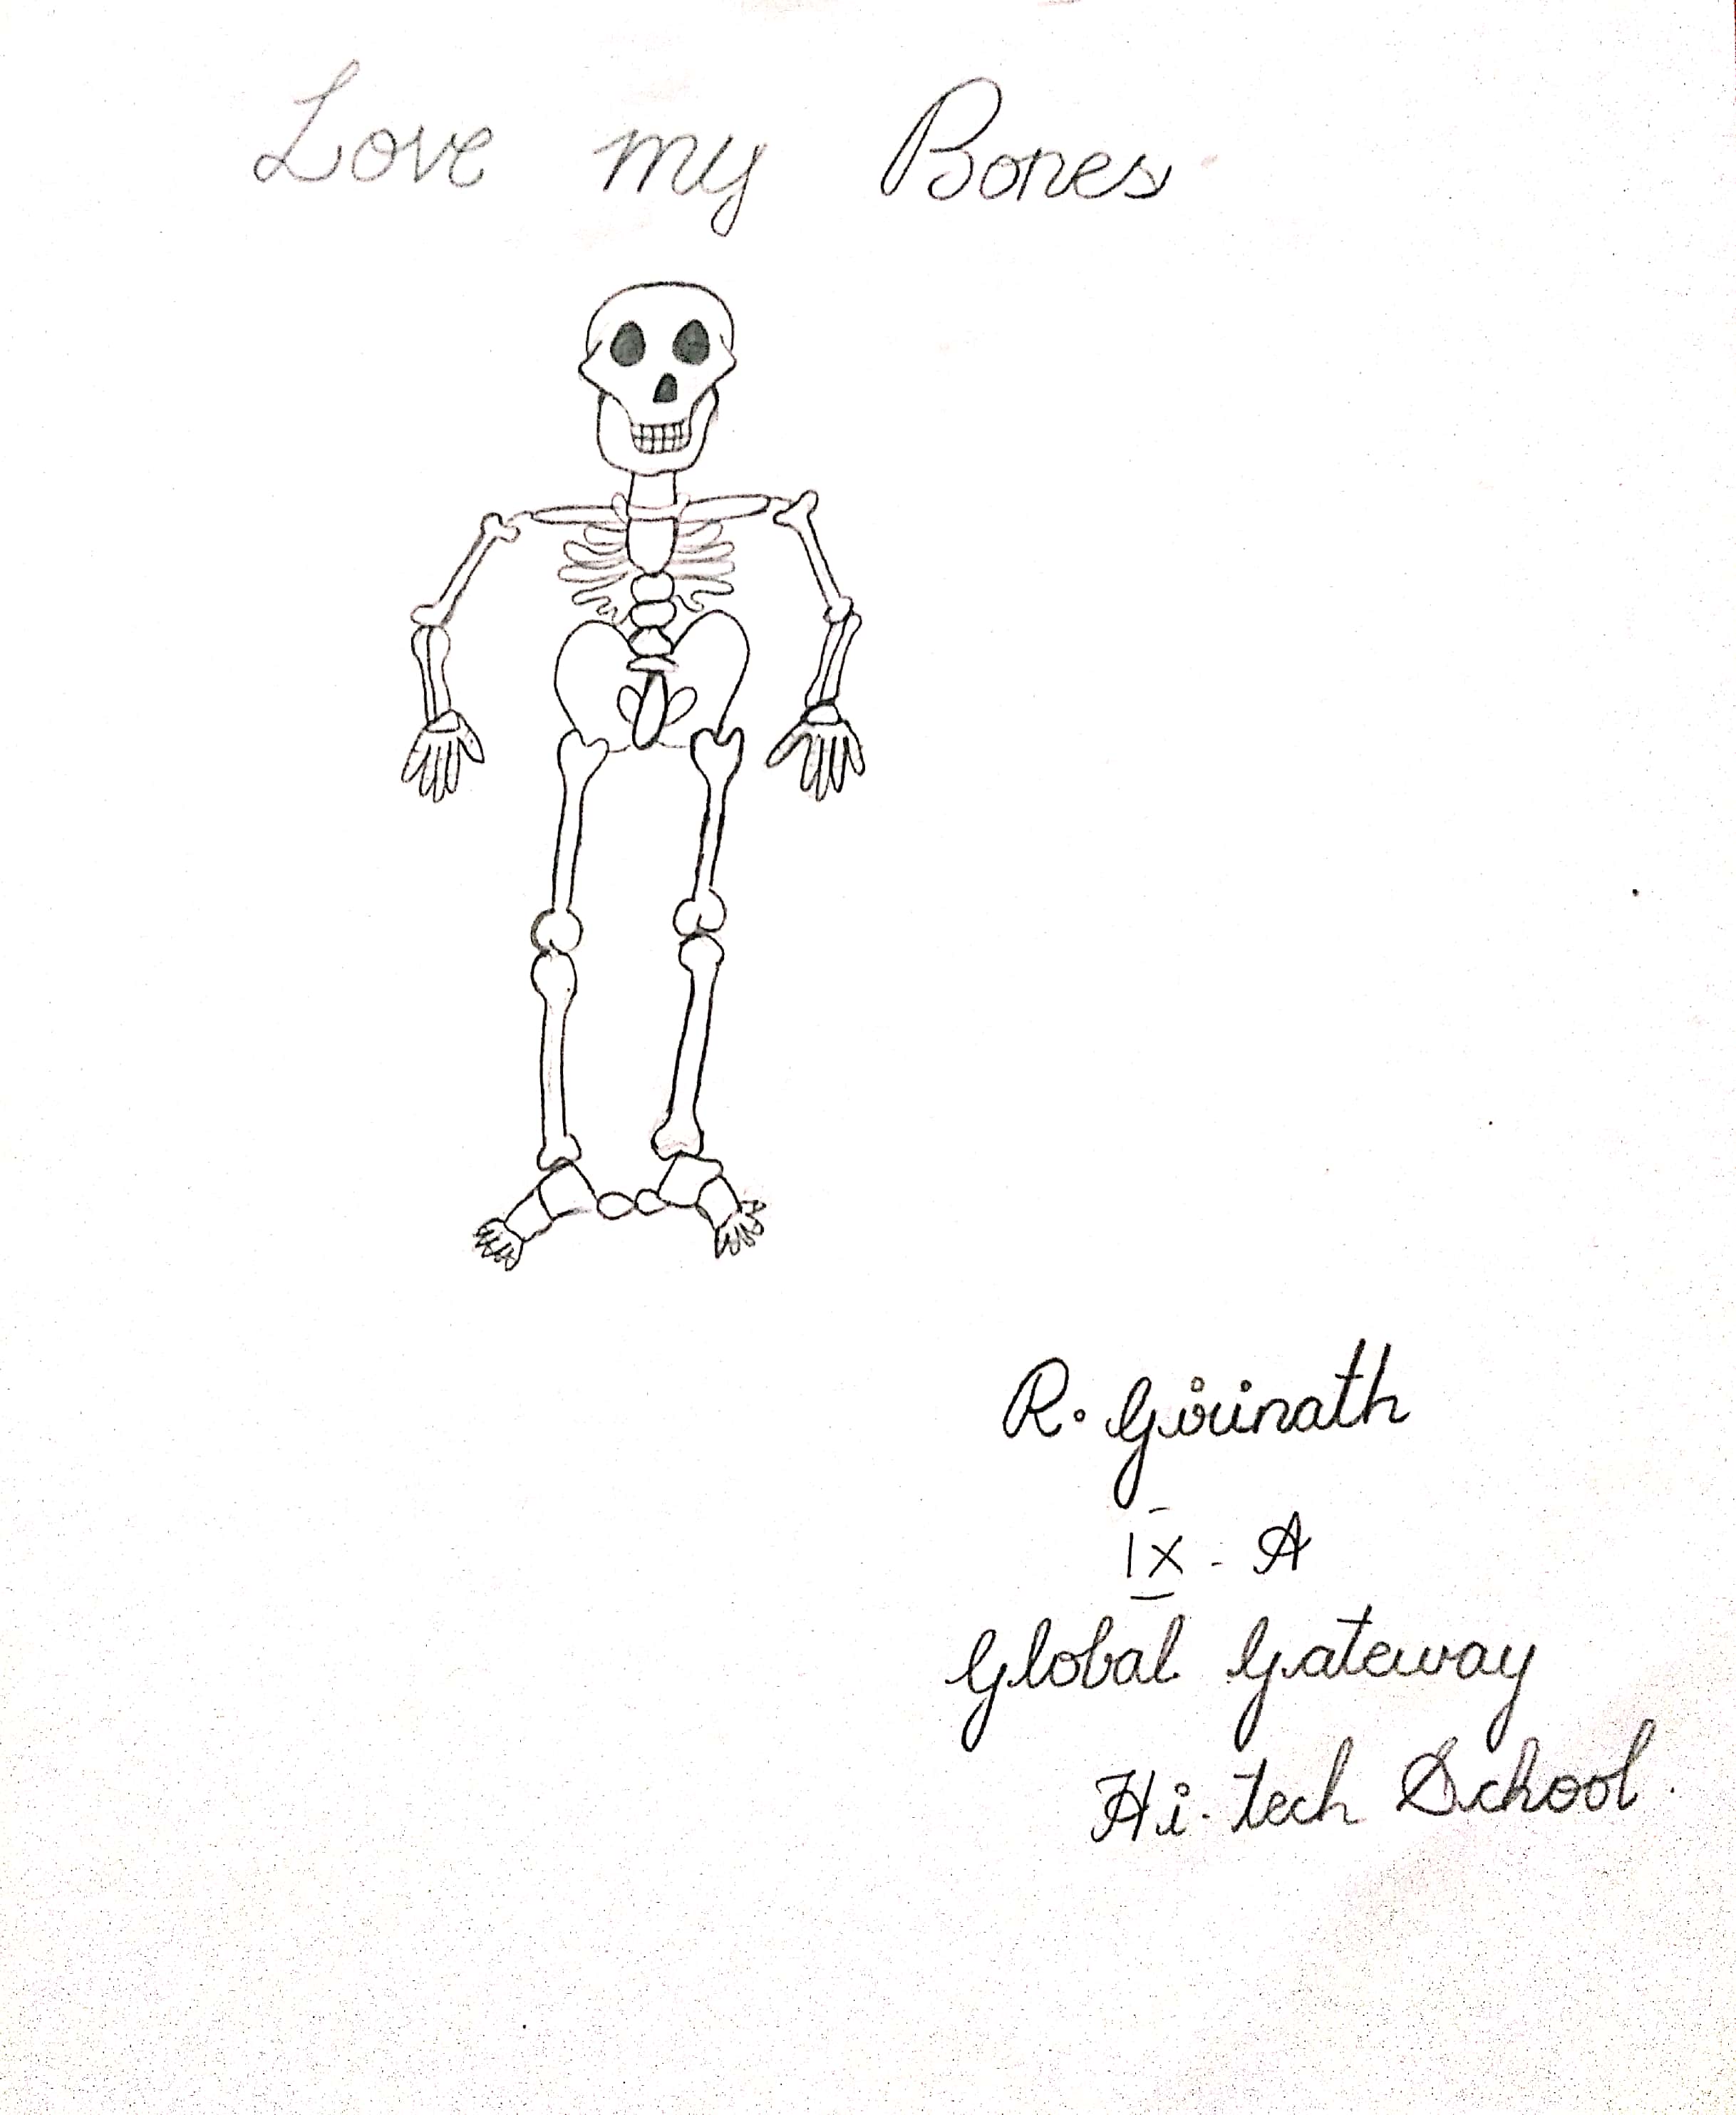 Love my Bones
R. Girinath
IX - A
Global Gateway
Hi-tech School.